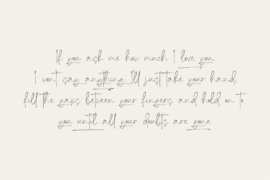 If you ask me how much I love you,
I won't say anything. I'll just take your hand,
fill the gaps between your fingers and hold on to
you until all your doubts are gone.